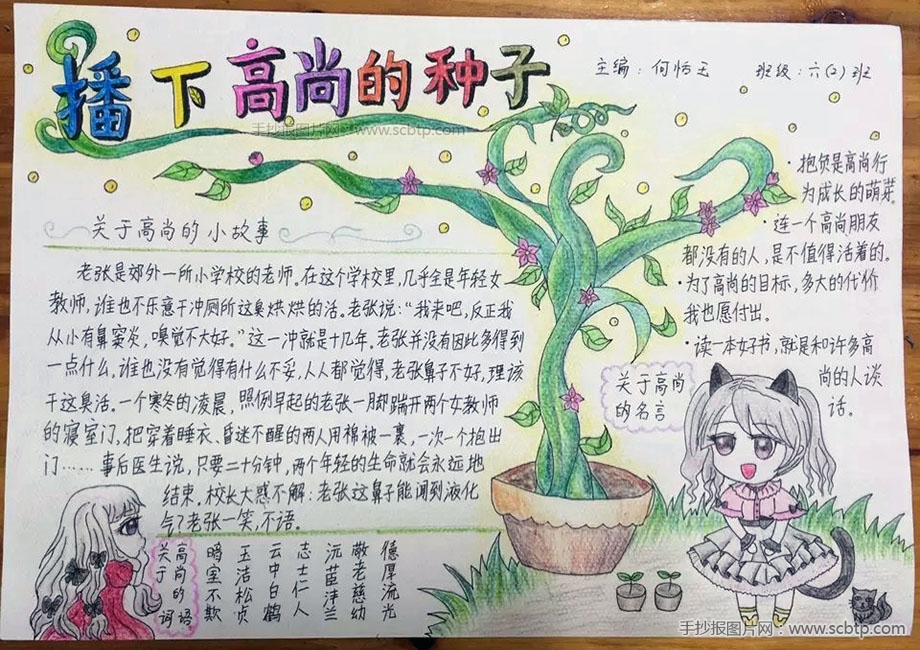 播下高尚的种子
主编：何恬玉 班级：六(2)班
手抄报图片网：www.scbtp.com
关于高尚的小故事
老张是郊外一所小学校的老师。在这个学校里，几乎全是年轻女
教师，谁也不乐意干冲厕所这臭烘烘的活。老张说：“我来吧，反正我
从小有鼻窦炎，嗅觉不大好。”这一冲就是十几年。老张并没有因此多得到
一点什么。谁也没有觉得有什么不妥，人人都觉得，老张鼻子不好，理该
干这臭活。一个寒冬的凌晨，照例早起的老张一脚踹开两个女教师
的寝室门，把穿着睡衣、昏迷不醒的两人用棉被一裹，一次一个抱出
门……事后医生说，只要二十分钟，两个年轻的生命就会永远地
结束，校长大惑不解：老张这鼻子能闻到液化
气？老张一笑，不语。
·抱负是高尚行
为成长的萌芽。
·连一个高尚朋友
都没有的人，是不值得活着的。
·为了高尚的目标，多大的代价
我也愿付出。
·读一本好书，就是和许多高
尚的人谈
话。
关于高尚
的名言
关于
高尚的
词语
暗室不欺
玉洁松贞
云中白鹤
志士仁人
沅茝沣兰
敬老慈幼
德厚流光
手抄报图片网：www.scbtp.com